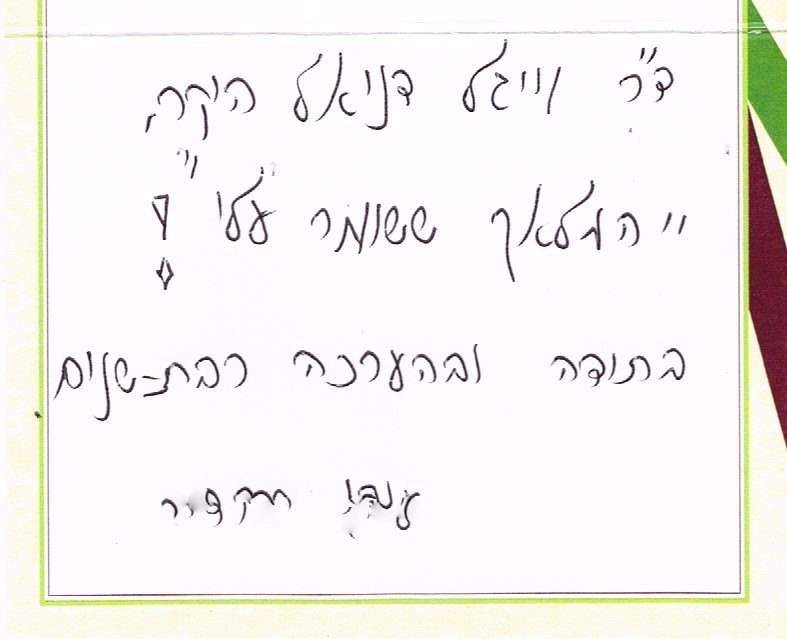 ד"ר וייגל דניאל היקר,
"המלאך ששומר עלי"!
בתודה ובהערכה רבת-שנים